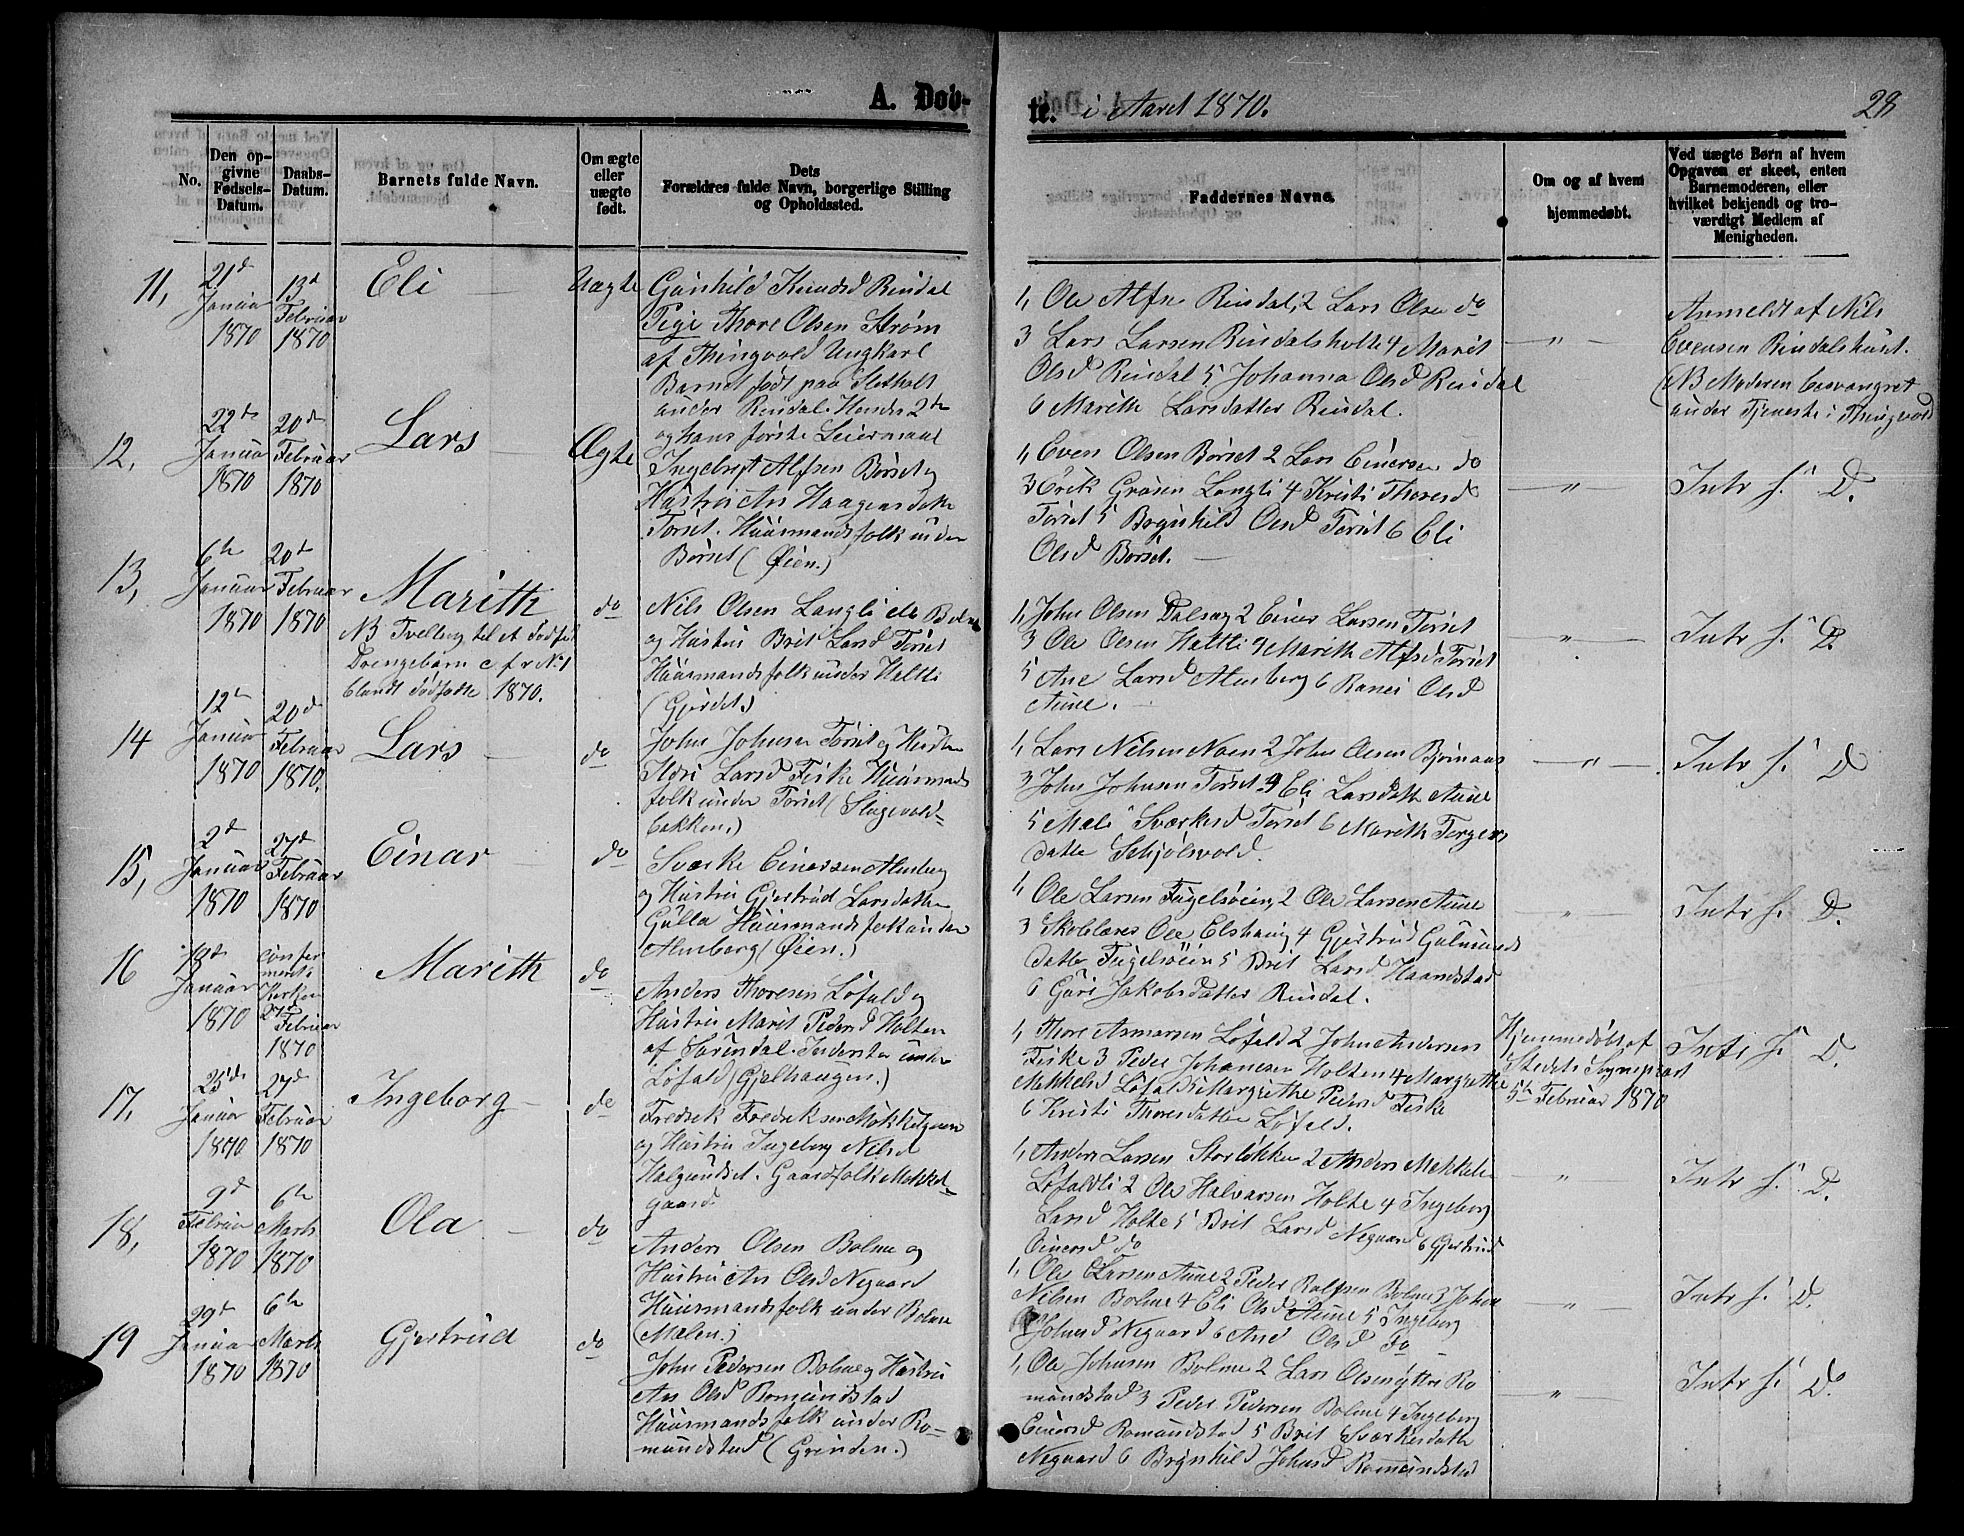 A. Døb-
te. i Aaret 1870.
28
No.
Den op-
givne
Fødsels-
Datum.
Daabs-
Datum.
Barnets fulde Navn.
Om ægte
eller
uægte
født.
Dets
Forældres fulde Navn, borgerlige Stilling
og Opholdssted.
Faddernes Navne.
Om og af hvem
hjemmedøbt.
Ved uægte Børn af hvem
Opgaven er skeet, enten
Barnemoderen, eller
hvilket bekjendt og tro-
værdigt Medlem af
Menigheden.
11,
21de
Januar
1870
13d
Februar
1870
Eli
Uægte
Gunhild Knudsd Rindal
Pige Thore Olsen Strøm
af Thingvold Ungkarl
Barnet født paa Sletholt
under Rindal. Hendes 2de
og hans første Leiermaal
1, Ole Alfn Rindal, 2 Lars Olsen do
3 Lars Larsen Rindalsholte 4 Marit
Olsd Rindal 5 Johanna Olsd Rindal
6 Marith Larsdatter Rindal.
"
Anmeldt af Nils
Evensen Rindalshuset.
NB Moderen besvangret
under Tjeneste i Thingvold
12,
22de
Januar
1870
20de
Februar
1870
Lars
Ægte
Ingebregt Alfsen Børset og
Hustru An Haagensdatter
Torset. Huusmandsfolk under
Børset (Øien.)
1, Even Olsen Børset 2 Lars Einersen do
3 Erik Langli 4 Kristi Thoresd
Torset 5 Brynhild Olsd Torset 6 Eli
Olsd Børset.
"
Intr f. D.
13,
6te
Januar
1870
20de
Februar
1870
Marith
NB Tvelling til et dødfød
Drengebarn cfr No 1
blandt dødfødte 1870.
do
Nils Olsen Langli
og Hustru Brit Larsd Torset
Huusmandsfolk under Heltli
(Gjerdet)
1, John Olsen Dalsag 2 Einer Larsen Torset
3 Ole Olsen Haltli 4 Marith Alfsd Torset
5 Ane Larsd Almberg 6 Ranei Olsd
Aune.
"
Intr f. D.
14
12te
Januar
1870
20de
Februar
1870.
Lars
do
John Johnsen Torset og Hustru
Larsd Fiske Huusmands
folk under Torset (Slagevold-
bakken.)
1, Lars Nilsen Moen 2 John Olsen Bjørnaas
3 John Johnsen Torset 4 Eli Larsdatter Aune
5 Mali Sværkesd Torset 6 Marith Torgers
datter Schjølsvold.
"
Intr f. D
15,
2d
Januar
1870
27de
Februar
1870
Einar
do
Sværke Einarssen Almberg
og Hustru Gjertrud Larsdatter
Gulla Huusmandsfolk under
Almberg (Øien.)
1, Ole Larsen Fugelsøien, 2 Ole Larsen Aune
3 Skolelærer Ole Elshaug 4 Gjertrud Gulmunds
datter Fugelsøien 5 Brit Larsd Haandstad
6 Guri Jakobsdatter Rindal.
"
Intr f. D.
16
Januar
1870
confer
ment i
Kirken
27de
Februar
1870
Marith
do
Anders Thoresen Løfald og
Hustru Marit Pedersd Holten
af Surendal. Inderster under
Løfald (Gjelhaugen.)
1, Thore Løfald 2 John Andersen
Fiske 3 Peder Johansen Holten 4 Margrethe
Mekkelsd Løfald 5 Margrethe Pedersd Fiske
6 Kristi Thoresdatter Løfald.
Hjemmedøbt af
Stedets Sognepræst
5te Februar 1870
Intr f. D.
17,
25de
Januar
1870
27de
Februar
1870
Ingeborg
do
Fredrik Fredriksen Mekkelgaard
og Hustru Ingeborg Nilsd
Halgundset. Gaardfolk Mekkel-
gaard
1, Anders Larsen Storløkken 2 Anders Mekkels
Løfaldli 2 Ole Halvarsen Holte 4 Ingeborg
Larsd Holte 5 Brit Larsd Negaard 6 Gjertrud
Einersd do
"
Intr f. D.
18,
9d
Februar
1870
6te
Marts
1870
Ola
do
Anders Olsen Bolme og
Hustru An Olsd Negaard
Huusmandsfolk under Bolme
(Malen.)
1, Ole Larsen Aune 2 Peder Rolfsen Bolme 3 John
Nilsen Bolme 4 Eli Olsd Aune 5 Ingeborg
Johnsd Negaard 6 Ane Olsd do
"
Intr f. D.
19
29de
Januar
1870
6te
Marts
1870
Gjertrud
do
John Pedersen Bolme og Hustru
An Olsd Romundstad
Huusmandsfolk under Ro-
mundstad (Grinden.)
1, Ole Johnsen Bolme 2 Lars Olsen yttre Ro
mundstad 3 Peder Pedersen Bolme 4 Ingeborg
Einersd Romundstad 5 Brit Sværkesdatter
Negaard 6 Brynhild Johnsd Romundstad
"
Intr f. D.